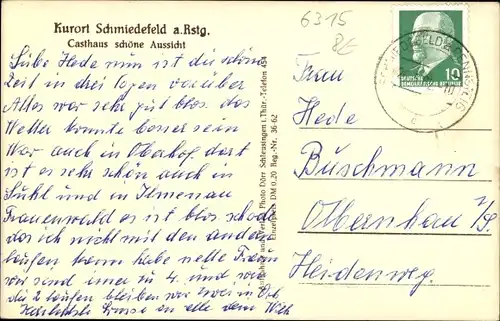 Kurort Schmiedefeld a. Rstg.
Gasthaus schöne Aussicht
Liebe Hede nun ist die schöne
Zeit in drei Tagen vorüber
Alles war sehr gut blos. das
Wetter konnte besser sein
War auch in Oberhof dort
ist es sehr schön auch in
Suhl und in Ilmenau
Frauenwald es ist blos schade
das ich nicht mit den andern
laufen kann habe nette Frauen
wir sind imer zu 4. und wen
die 2 laufen bleiben wir zwei in Ort
Herzlichste Grüsse an alle dein
Photo Dörr Schleusingen i. Thür. Telefon 454
Einzelpreis DM 0.20 Reg.-Nr. 36-62
6315
DEUTSCHE
DEMOKRATISCHE REPUBLIK
10
Frau
Hede
Buschmann
Olbernhau
Heidenweg.